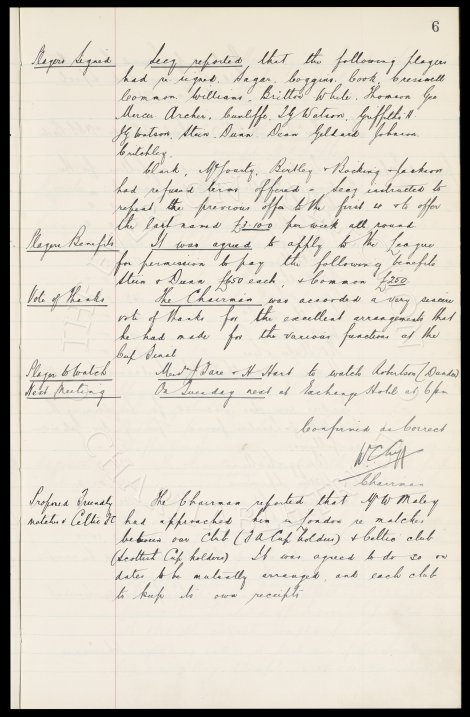 6
Players Signed Secy reported that the following players
had re signed. Sagar, Coggins, Cook, Cresswell
Common Williams, Britton White, Thomson Geo
Mercer Archer, Cunliffe, T.G. Watson, Griffiths H
J.G. Watson, Stein Dunn Dean Geldard Johnson
Critchley.
Clark, McGourty, Birtley & Bocking & Jackson
had refused terms offered - Secy instructed to
repeat the previous offer to the first 4 & to offer
the last named £3.10.0 per week all round
Players Benefits It was agreed to apply to the League
for permission to pay the following benefits
Stein & Dunn £650 each, & Common £250
Vote of Thanks The Chairman was accorded a very sincere
vote of thanks for the excellent arrangements that
he had made for the various functions at the
Cup Final
Player to Watch Hare & A Hart to watch Robertson (Dundee)
Next Meeting On Tuesday next at Exchange Hotel at 6pm
Confirmed as Correct
W C Cuff
Chairman
Proposed Friendly The Chairman reported that Mr W Maley
matches & Celtic FC had approached him in London re matches
between our club (F A Cup holders) & Celtic club
(Scottish Cup holders) It was agreed to do so on
dates to be mutually arranged, and each club
to keep its own receipts